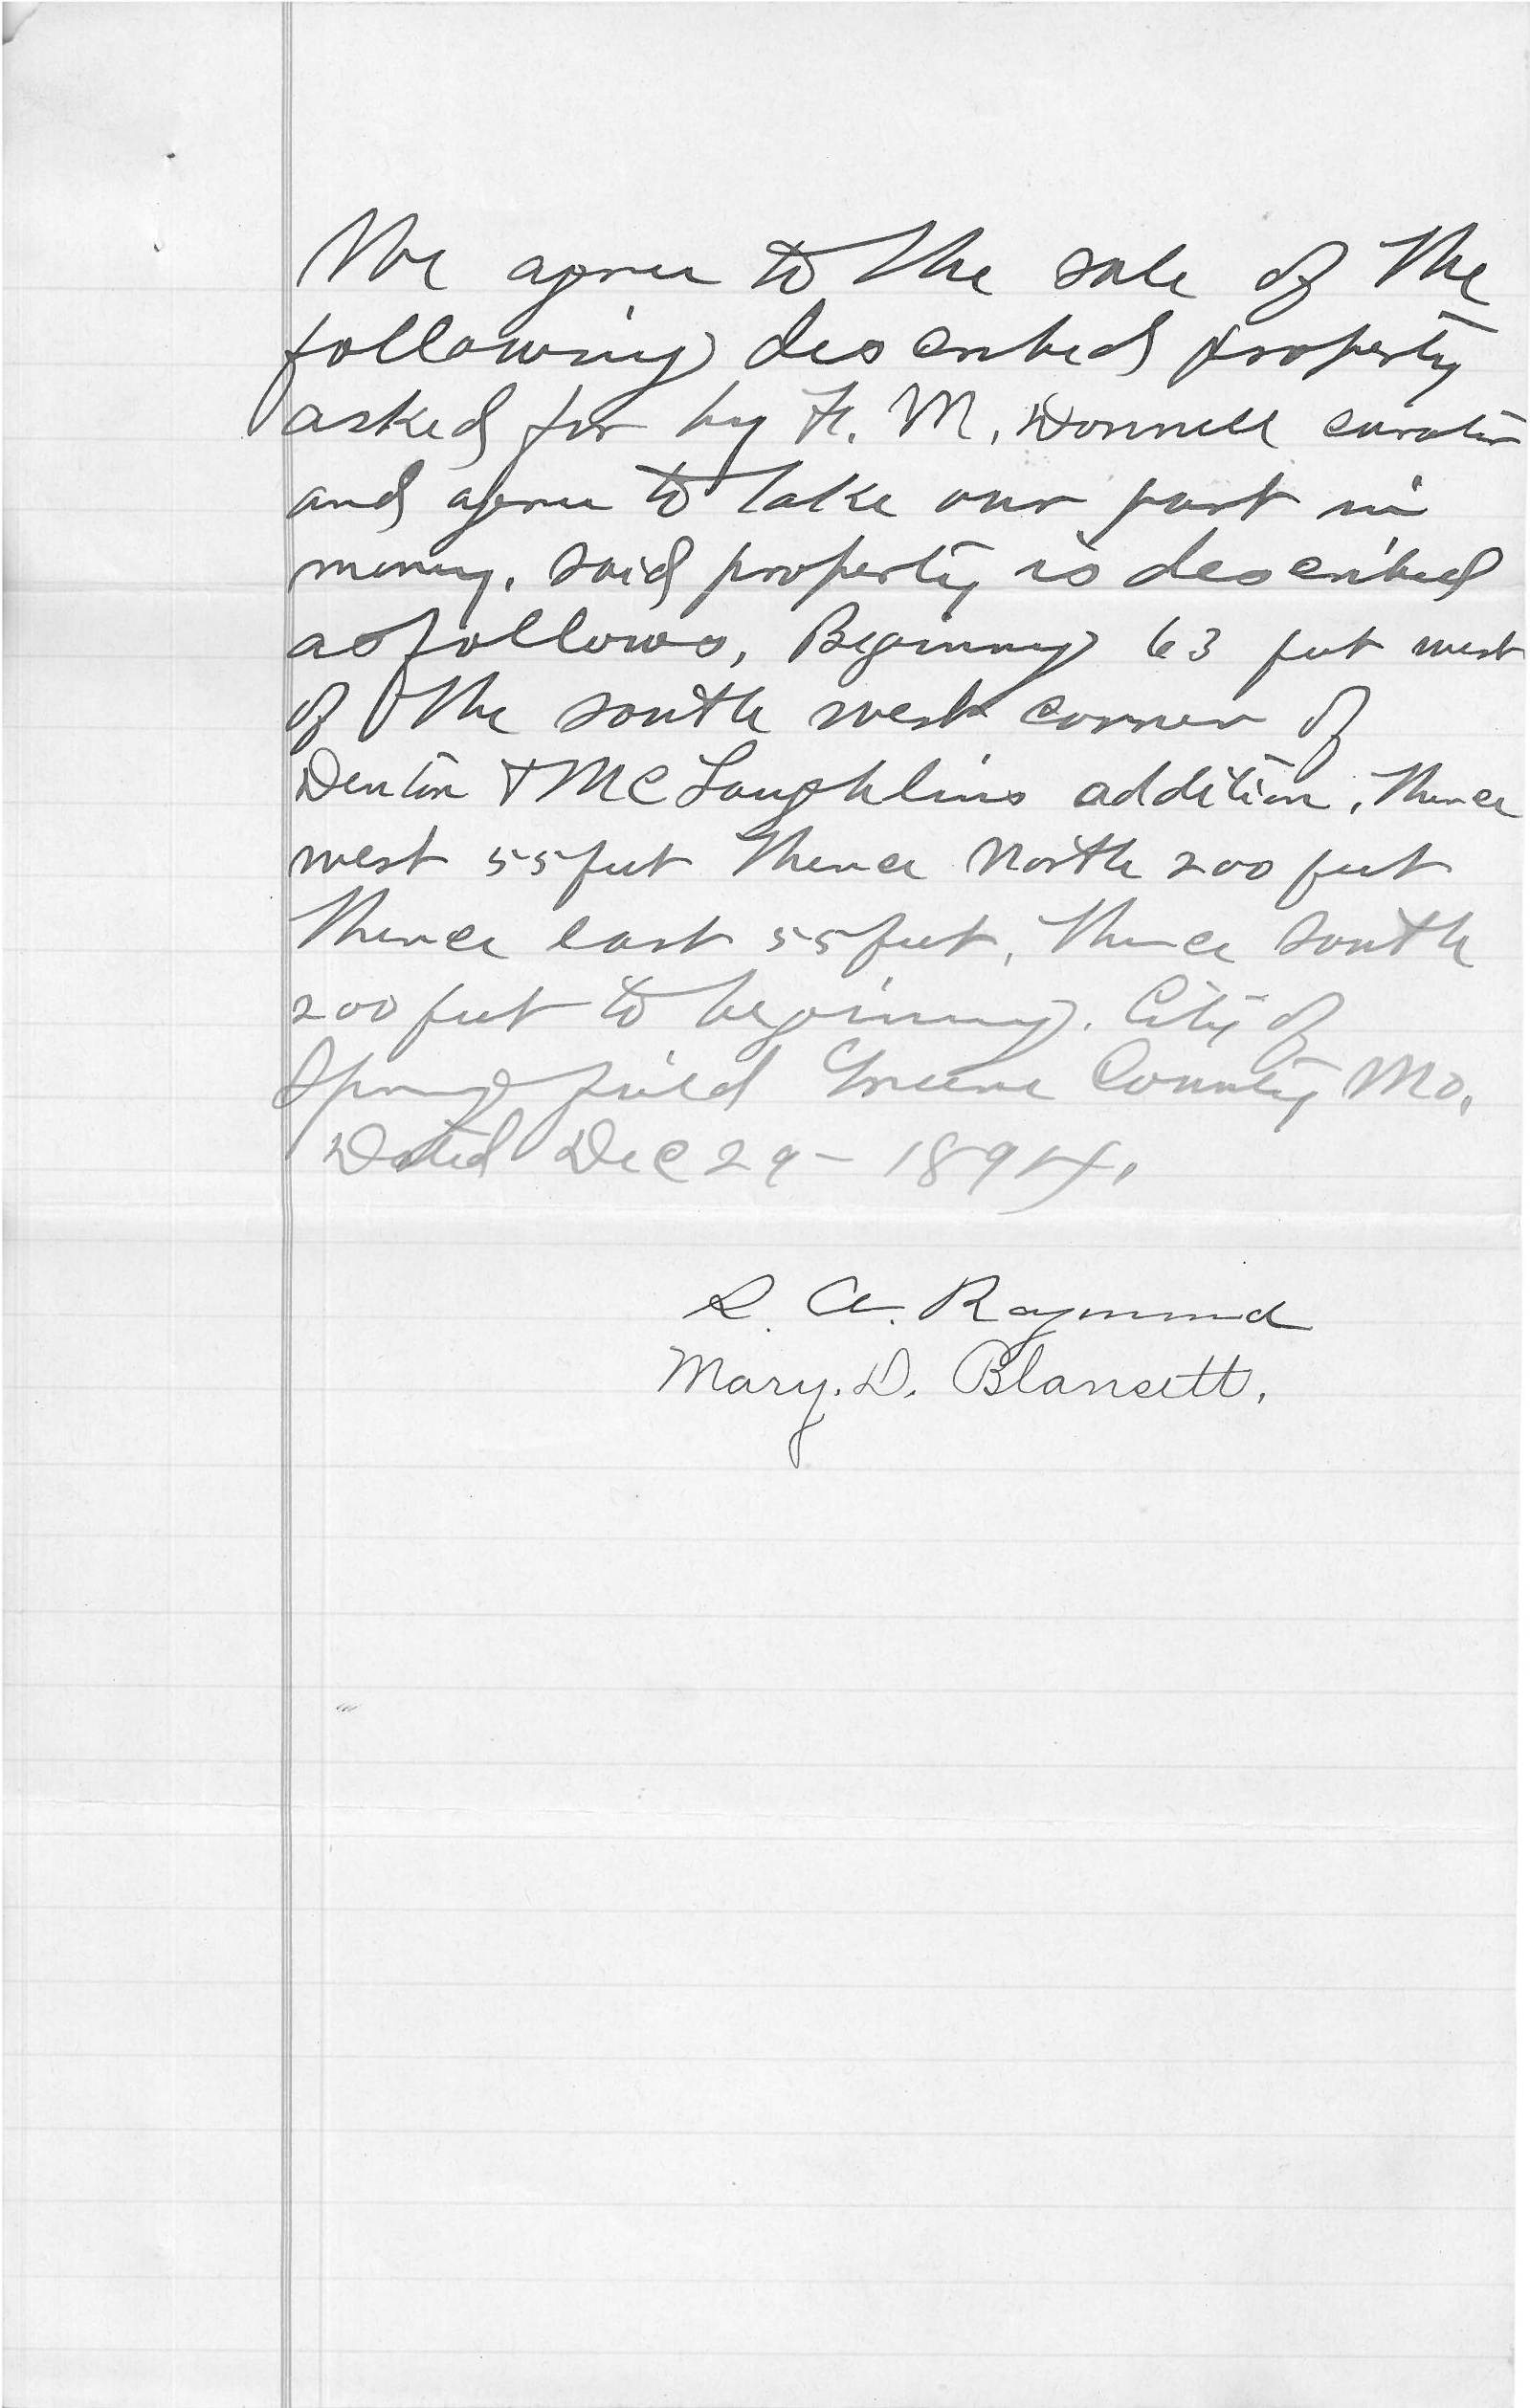 We agree to the sale of the
following described property
asked for by F. M. Donnell curator
and agree to take our part in
money. Said property is described
as follows, Beginning 63 feet west
of the south west corner of
Denton & McLaughlins addition, Thence
west 55 feet Thence North 200 feet
Thence east 55 feet, Thence South
200 feet to beginning. City of
Springfield Greene County Mo.
Dated Dec 29 - 1894.
R. A. Raymond
Mary. D. Blansett.